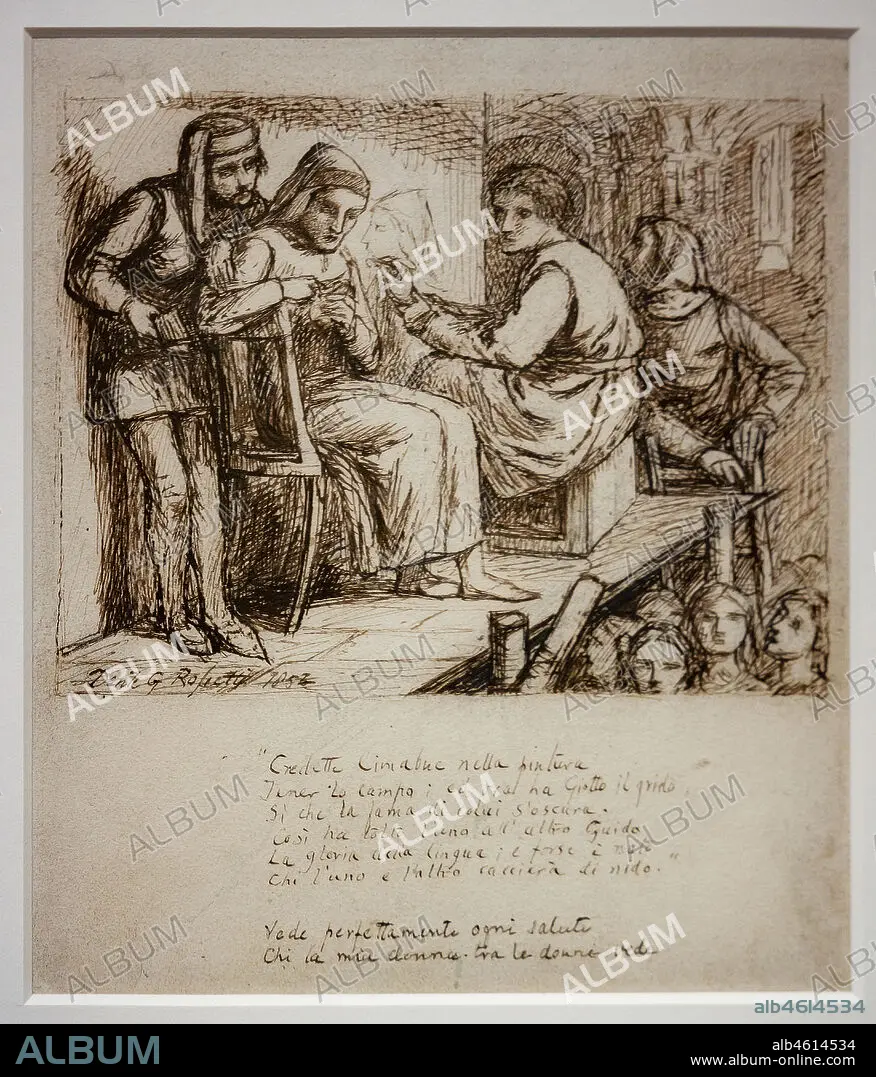 Dante G Rossetti 1852
"Credette Cimabue nella pintura
Tener lo campo; ed ora ha Giotto il grido,
Sì che la fama di colui s'oscura.
Così ha tolto l'uno all'altro Guido
La gloria della lingua; e forse è nato
Chi l'uno e l'altro caccierà di nido."
Vede perfettamente ogni salute
Chi la mia donna tra le donne vede
ALBUM
alb4614534
ALBUM
alb4614534
www.album-online.com